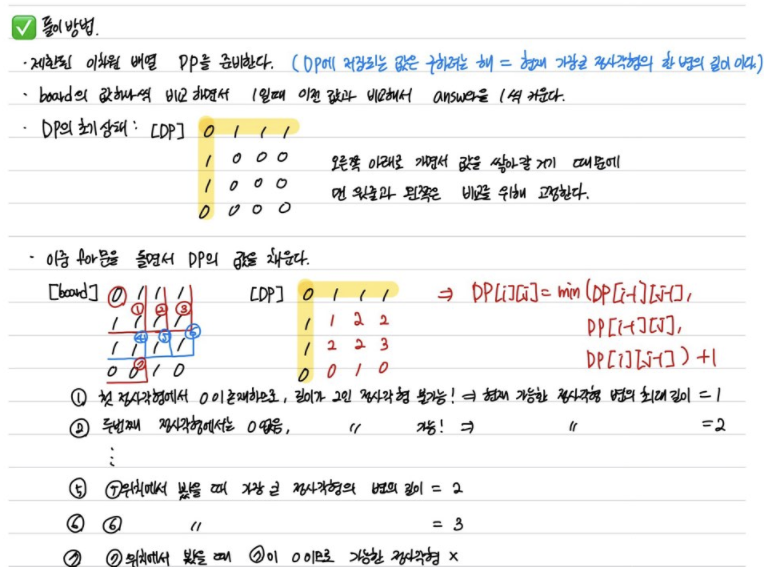 ✅ 풀이 방법.
· 제한된 이차원 배열 DP를 준비한다. (DP에 저장되는 값은 구하려는 해 = 현재 가장 큰 정사각형의 한 변의 길이 이다.)
· board의 값하나씩 비교하면서 1일때 이전 값과 비교해서 answer을 1씩 키운다.
· DP의 초기 상태 : [DP] 0 1 1 1
1 0 0 0 오른쪽 아래로 가면서 값을 쌓아갈 거기 때문에
1 0 0 0 맨 윗줄과 왼쪽은 비교를 위해 고정한다.
0 0 0 0
· 이중 for문을 돌면서 DP의 값을 채운다.
[board] 0 1 1 1 [DP] 0 1 1 1 ⇒ DP[i][j] = min (DP[i-1][j-1],
1 1 1 1 ① ② ③ 1 1 2 2 DP[i-1][j],
1 1 1 1 ④ ⑤ ⑥ 1 2 2 3 DP[i][j-1]) + 1
0 0 1 0 ⑦ 0 0 1 0
① 첫 정사각형에서 0이 존재하므로, 길이가 2인 정사각형 불가능! ⇒ 현재 가능한 정사각형 변의 최대 길이 = 1
② 두번째 정사각형에서는 0 없음, 〃 가능! ⇒ 〃 = 2
⋮
⑤ ⑤위치에서 봤을 때 가장 큰 정사각형의 변의 길이 = 2
⑥ ⑥ 〃 = 3
⑦ ⑦위치에서 봤을 때 ⑦이 0이므로 가능한 정사각형 ×